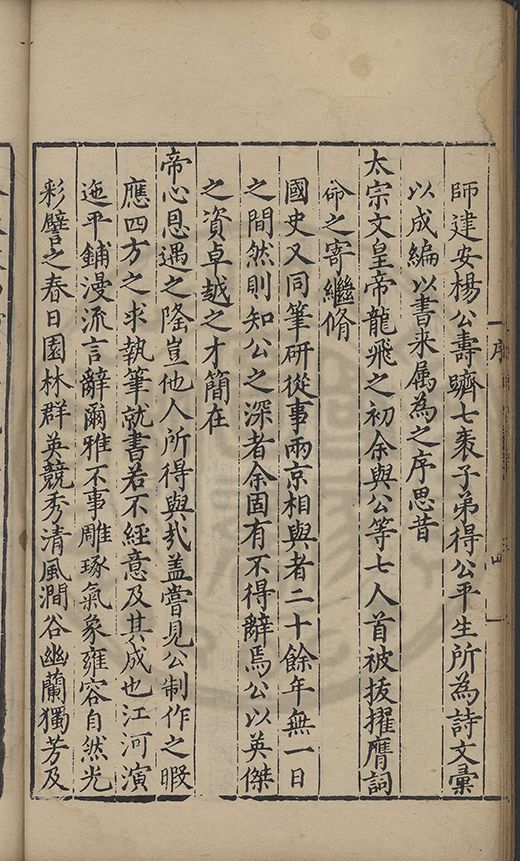 序
四
師建安楊公壽躋七袠子弟得公平生所為詩文彙
以成編以書來属為之序思昔
太宗文皇帝龍飛之初余與公等七人首被抜擢膺詞
命之寄繼脩
國史又同筆研從事兩京相與者二十餘年無一日
之間然則知公之深者余固有不得辭焉公以英傑
之資卓越之才簡在
帝心恩遇之隆豈他人所得與㢤盖嘗見公制作之暇
應四方之求執筆就書若不經意及其成也江河演
迤平鋪漫流言辭爾雅不事雕琢氣象雍容自然光
彩譬之春日園林群英競秀清風澗谷幽蘭獨芳及